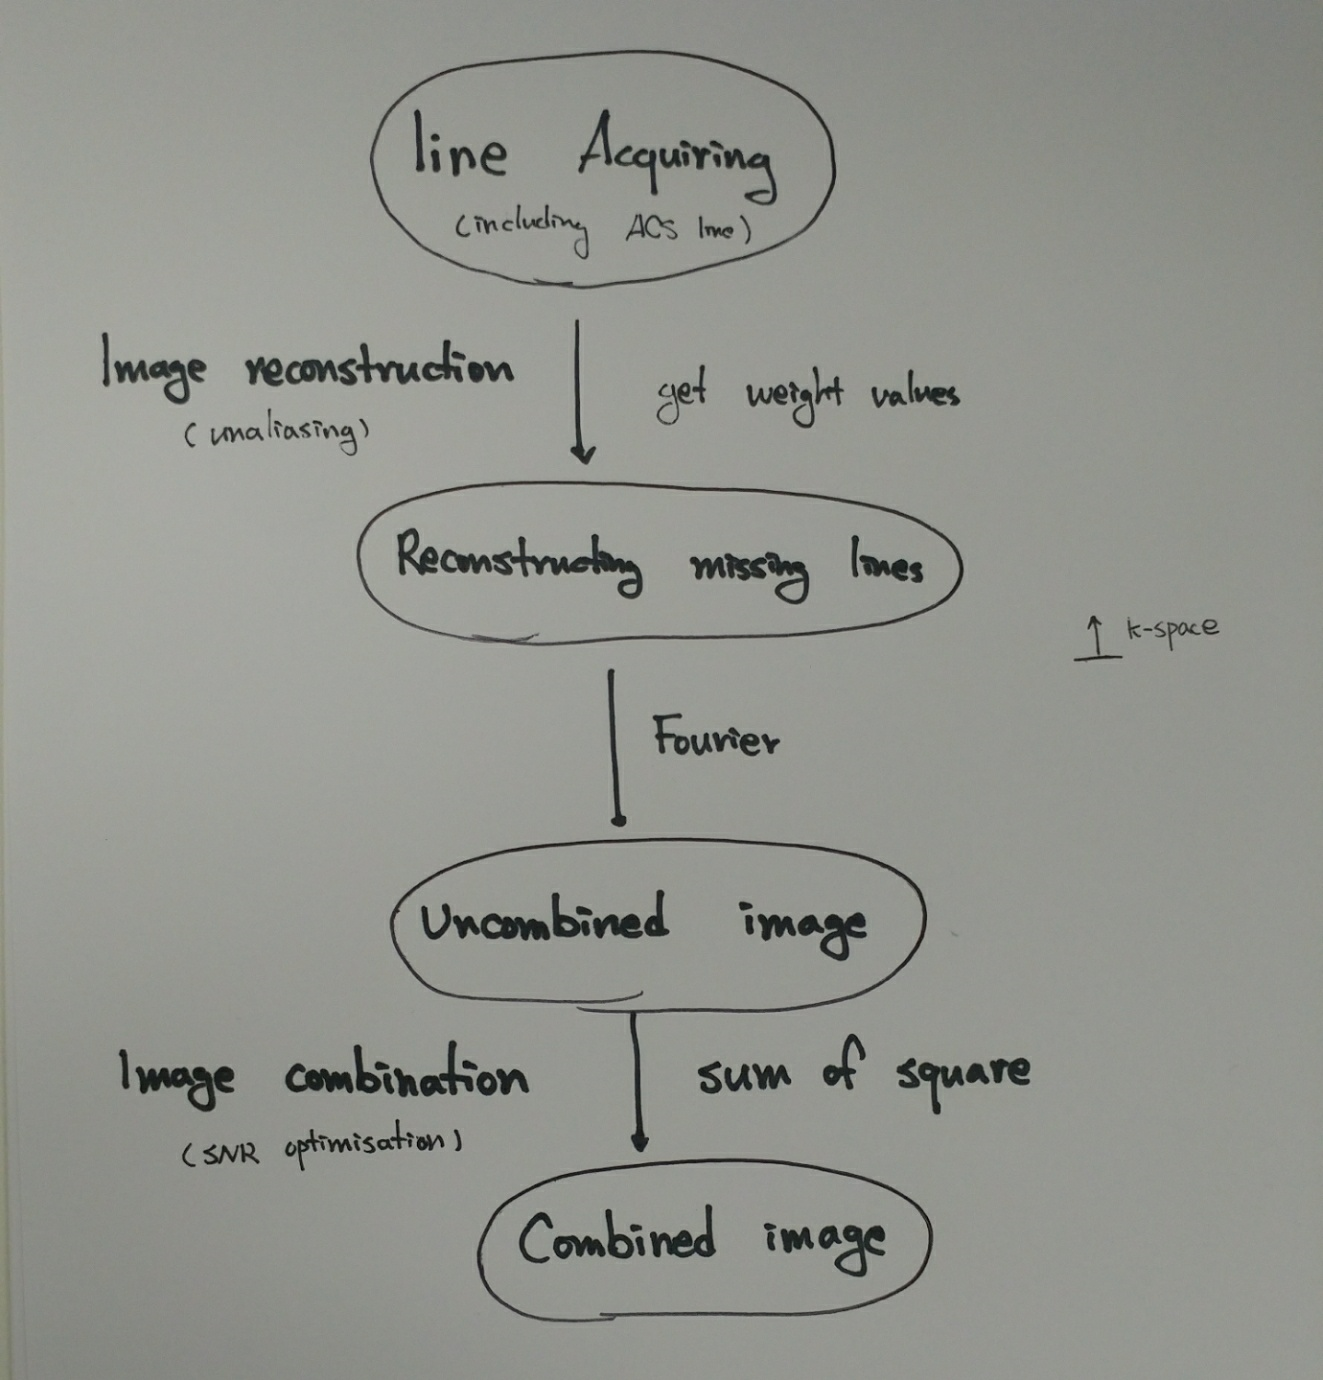 line Acquiring
(including ACS line)
Image reconstruction
(unaliasing)
get weight values
Reconstructing missing lines
↑ k-space
Fourier
Uncombined image
Image combination
(SNR optimisation)
sum of square
Combined image